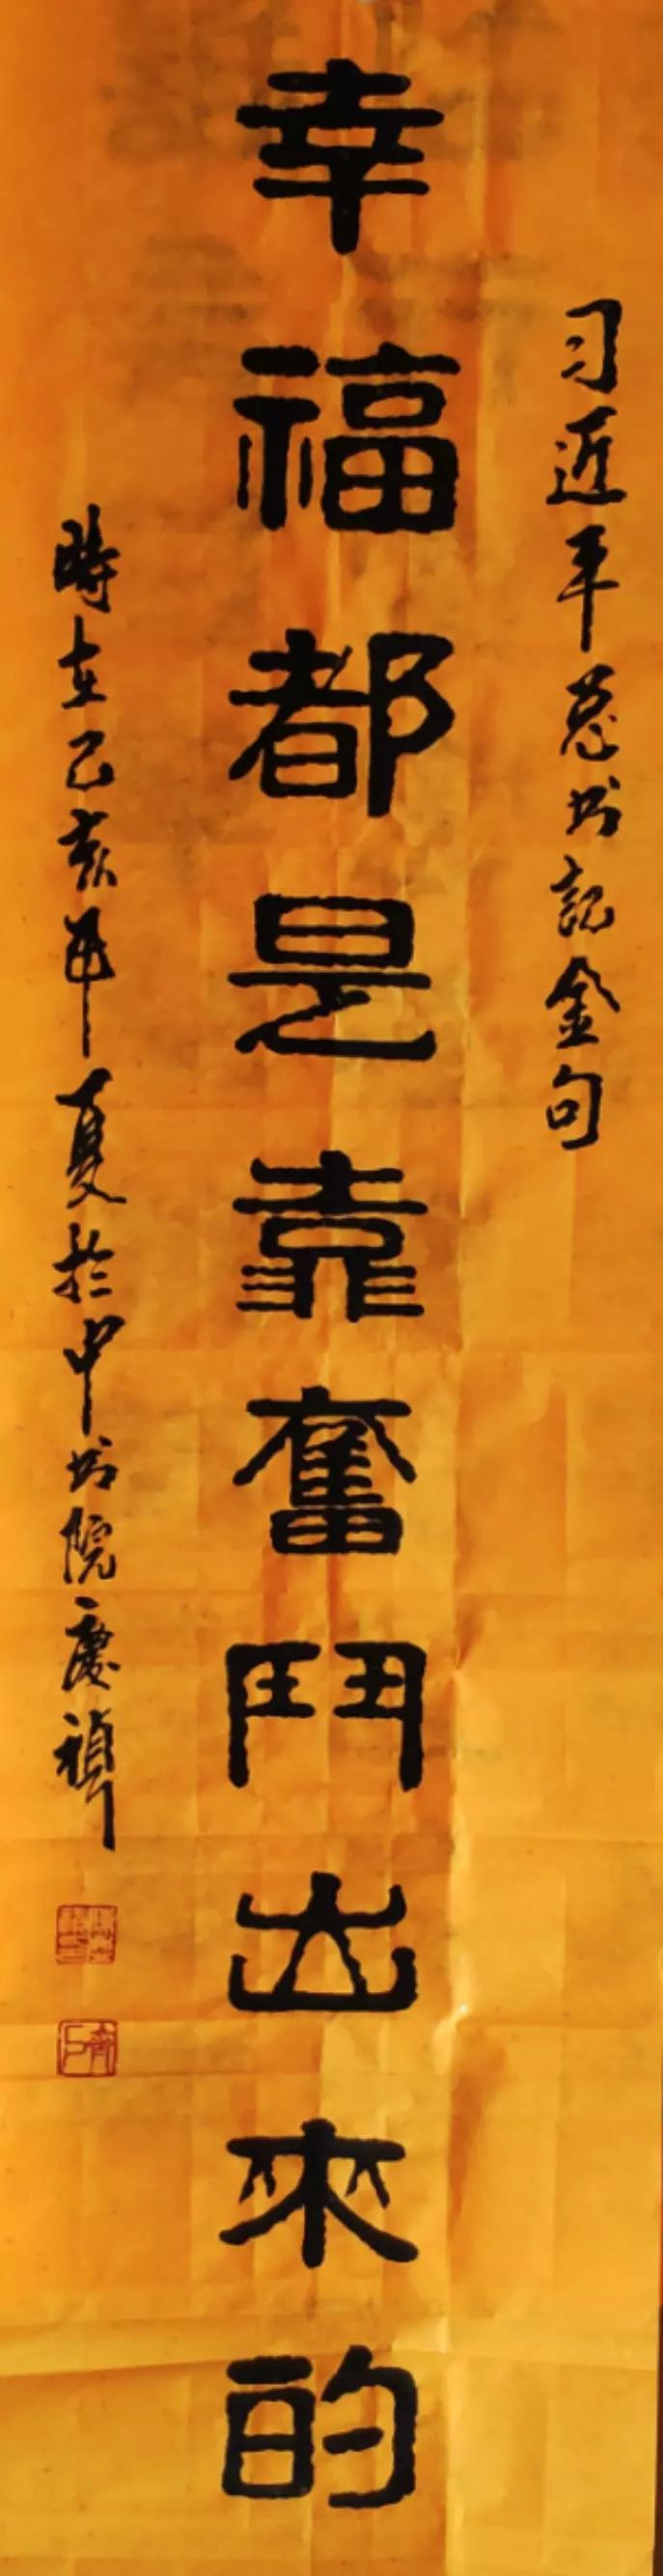 习近平总书记金句
幸福都是靠奮鬥出來的
時在己亥年夏於中书院慶禎